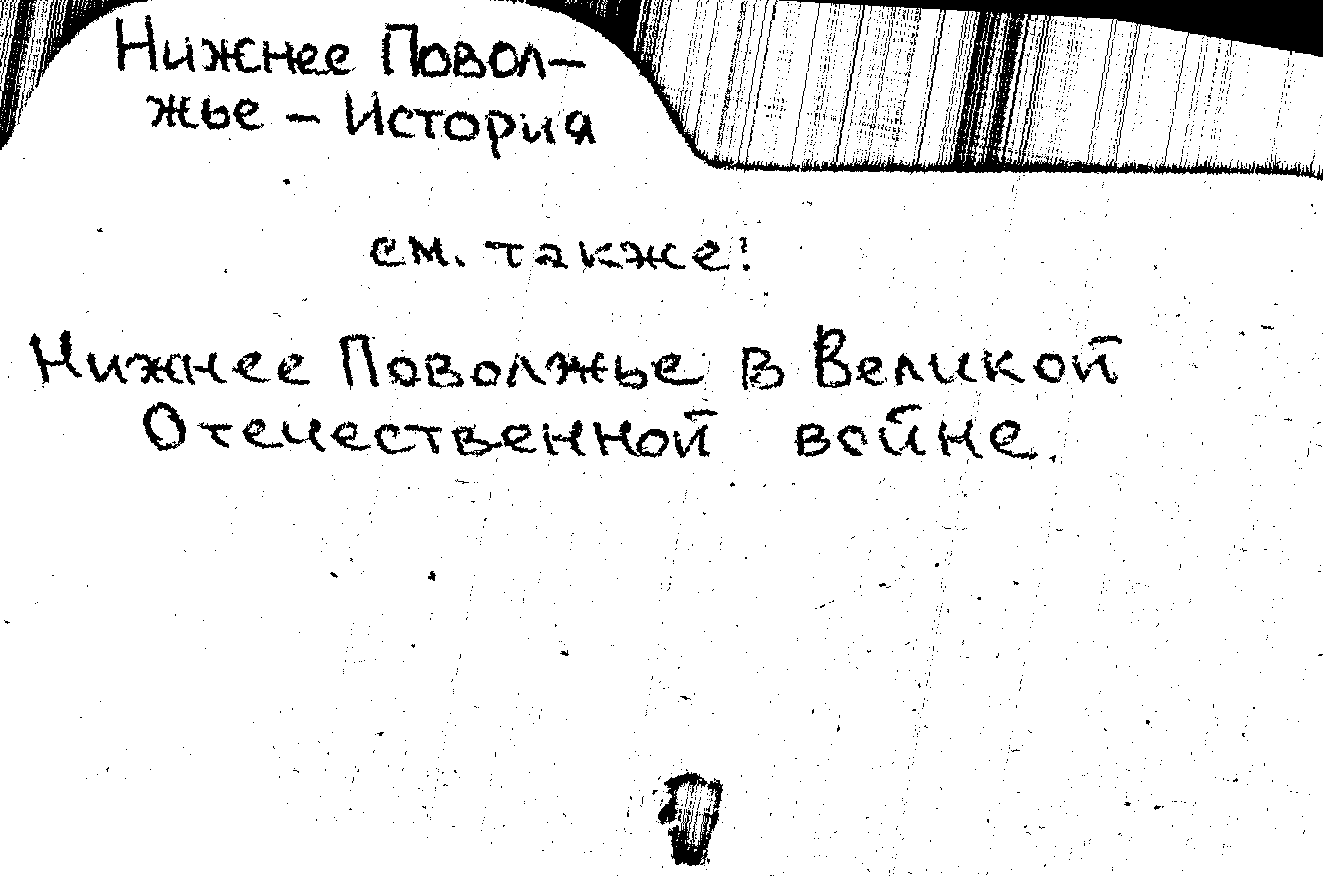 Нижнее Повол-
жье - История
см. также:
Нижнее Поволжье в Великой
Отечественной войне.